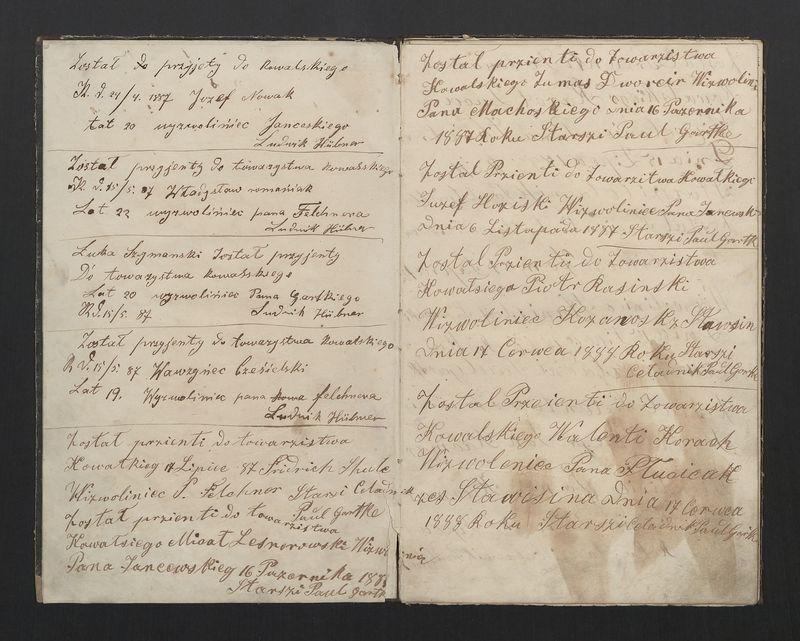 Został do przyjęty do kowalskiego
R. d. 24/4. 1887 Jozef Nowak
Lat 20 wyzwoliniec Janceskiego
Ludwik Hübner
Zostal przyjenty do towazystwa kowalskiego
R. d. 15/5. 87 Władysław romaniak
Lat 22 wyzwoliniec pana Felchnera
Ludwik Hübner
Luba Szymanski Został przyjenty
Do towazystwa kowalskiego
Lat 20 wyzwoliniec Pana Gartkiego
R d. 15/5 87 Ludwik Hübner
Zostal przyjenty do towazystwa kowalskiego
R d. 15/5 87 Wawzyniec
Lat 19. Wyzwoliniec pana felchnera
Ludwik Hübner
Zostal przienti do towarzistwa
Kowalkieg 17 Lipiec 87 Fridrich Shulc
Wizwoliniec P. Felchner Starsi Celadnik
Paul Gartke
Zostal przienti do towarzistwa
Kowalsiego Lesnorowski Wizwo
Pana Jancewskieg 16 Pazernika 188
Starszi Paul Gartk
Zostal przienti do Towarzistwa
Kowalskiego Tumas Dworcir Wizwolin
Pana Machoskiego dnia 16 Pazernika
1887 Roku Starszi Paul Gartke
Zostal Przienti do Towarzitwa Kowalkiego
Juzef Wizwoliniec Pana Jancewsk
Dnia 6 Listopada 1887 Starszi Paul Gartk
Zostal Przienti do Towarzistwa
Kowalsiego Piotr Rasinski
Wizwoliniec Kozanoskz Stawsin
Dnia 17 Cerwca 1888 Roku Starszi
Celadnik Paul Gartk
Zostal Przcienti do Towarzistwa
Kowalskiego Walenti Korach
Wizwoleniec Pana
zes Stawisina Dnia 17 Cerwca
1888 Roku Starszi Celadnik Paul Gartk